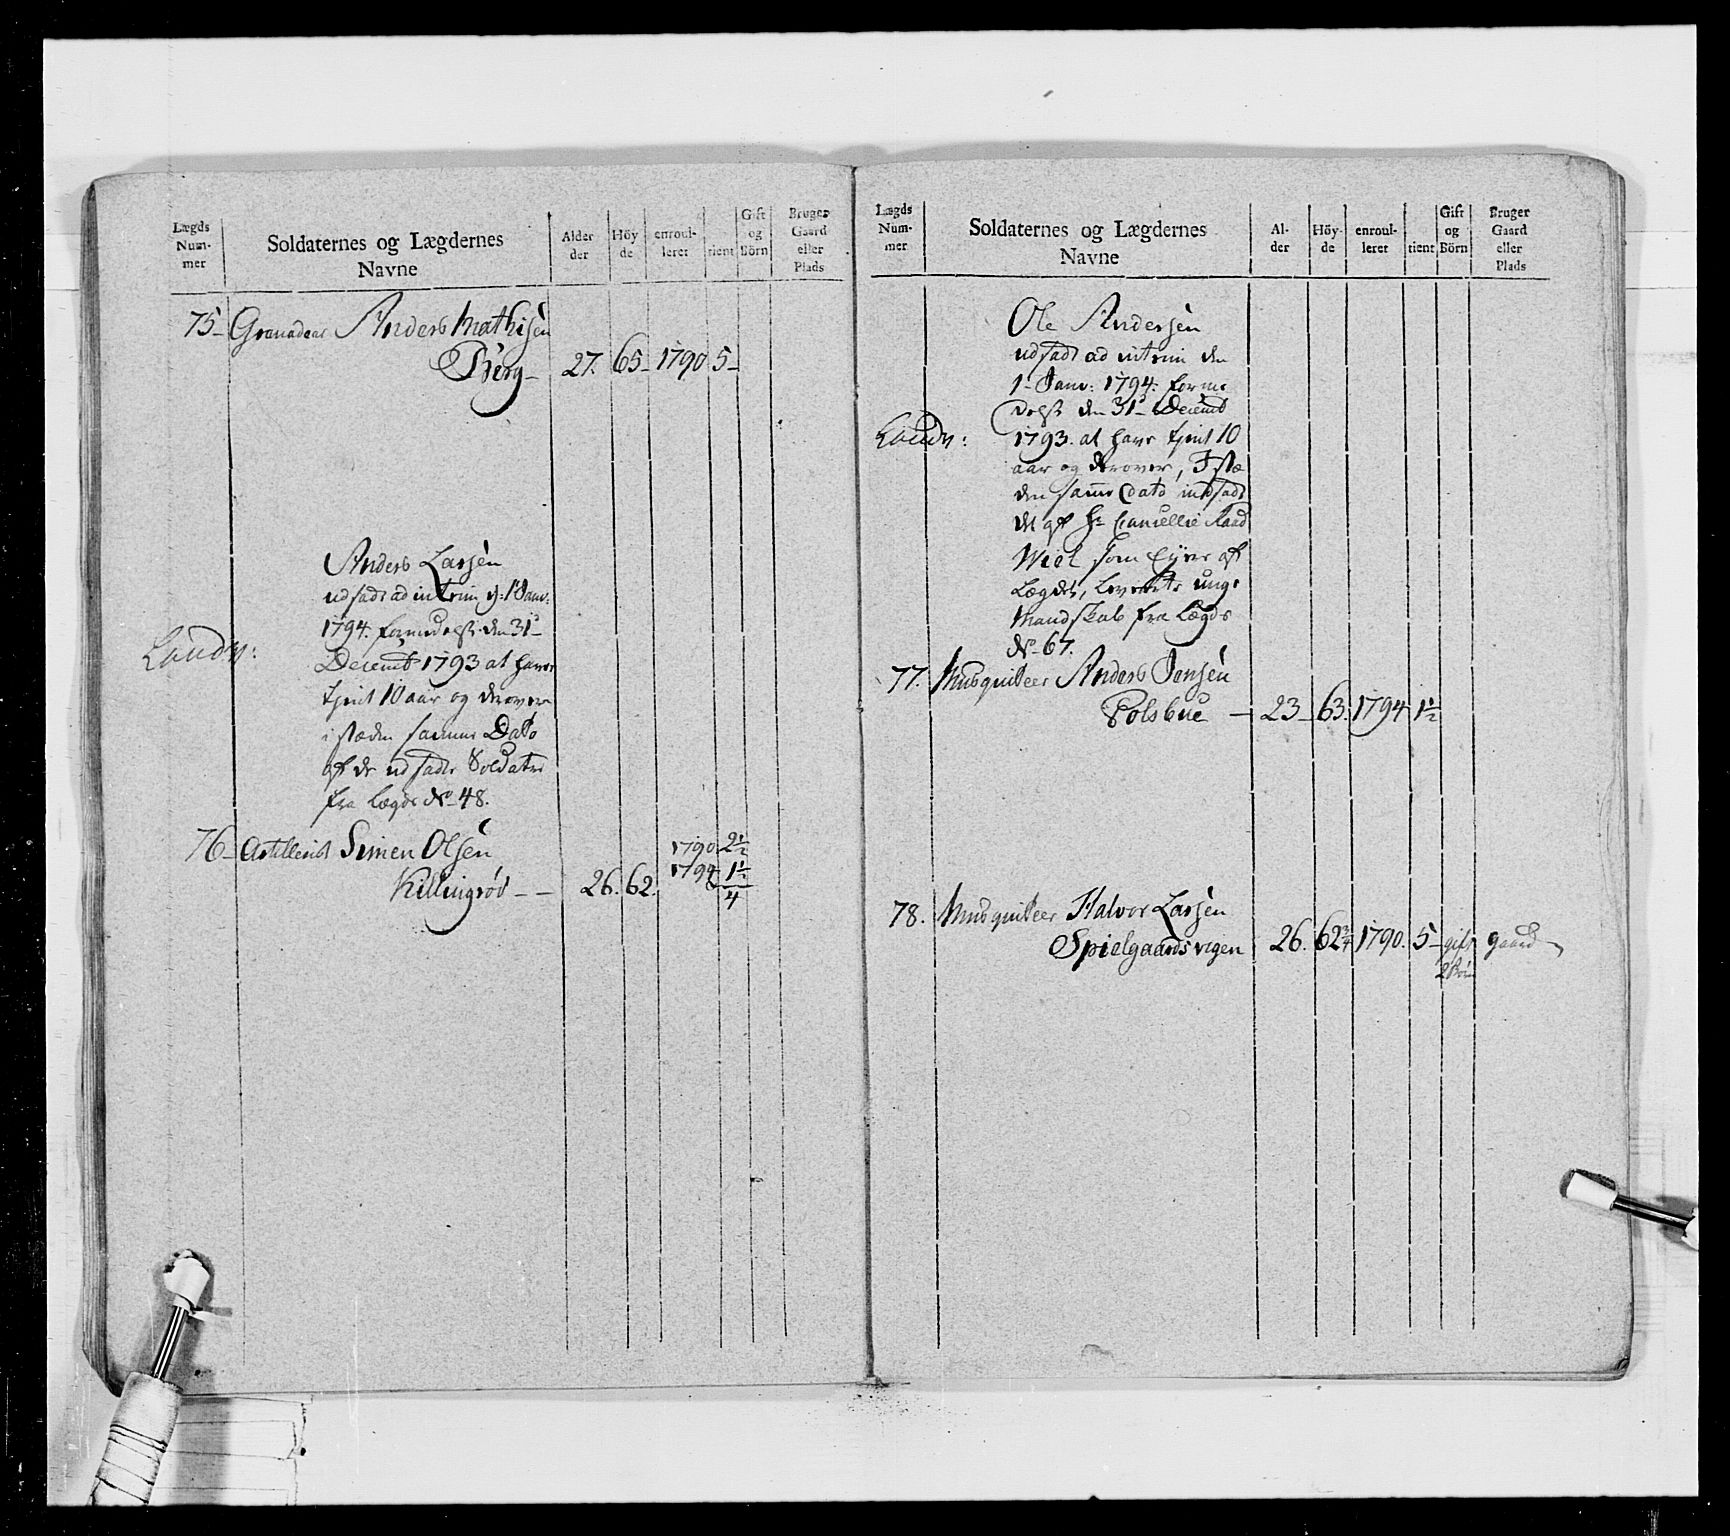 Lægds Num- mer
Soldaternes og Lægdernes Navne
Alder der
Höy de
enroul- leret
tient
Gift og Börn
Bruger Gaard eller Plads
75- Granadeer Anders Mathisen
Berg- 27. 65- 1790 5-
Anders Larsen
udsadt ad interim d: 1 Janv:
1794. formedelst den 31te
Decemb 1793 at have
tient 10 aar og derover
i stæden samme Dato
af de udsadte Soldater
fra Lægde No 48.
Landv:
76- Artillerist Simen Olsen 1790 2½
Killingröd - - 26. 62. 1794 1½
4
Lægds Num- mer
Soldaternes og Lægdernes Navne
Al- der
Höy- de
enroul- leret
tient
Gift og Börn
Bruger Gaard eller Plads
Ole Andersen
udsadt ad interim den
1- Janv: 1794. forme
delst den 31te Decemb
Landv: 1793. at have tient 10
aar og derover, I stæ
den samme Dato indsadt
det af Hr Cancellie Raad
Wiel som Eyer af
Lægdet, leverte unge
Mandskab fra Lægde
No 67.
77. Musqueteer Anders Jensen
Folsbue - 23- 63. 1794 1½
78. Musqueteer Halvor Larsen
Spielgaardsvigen 26. 62¾ 1790. 5- gift gaard
2 Börn